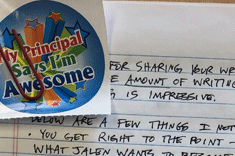 My Principal
Says I'm
Awesome
FOR SHARING YOUR
AMOUNT OF WRITING
IS IMPRESSIVE.
BELOW ARE A FEW THINGS I
• YOU GET RIGHT TO THE POINT -
WHAT JALEN WANTS TO